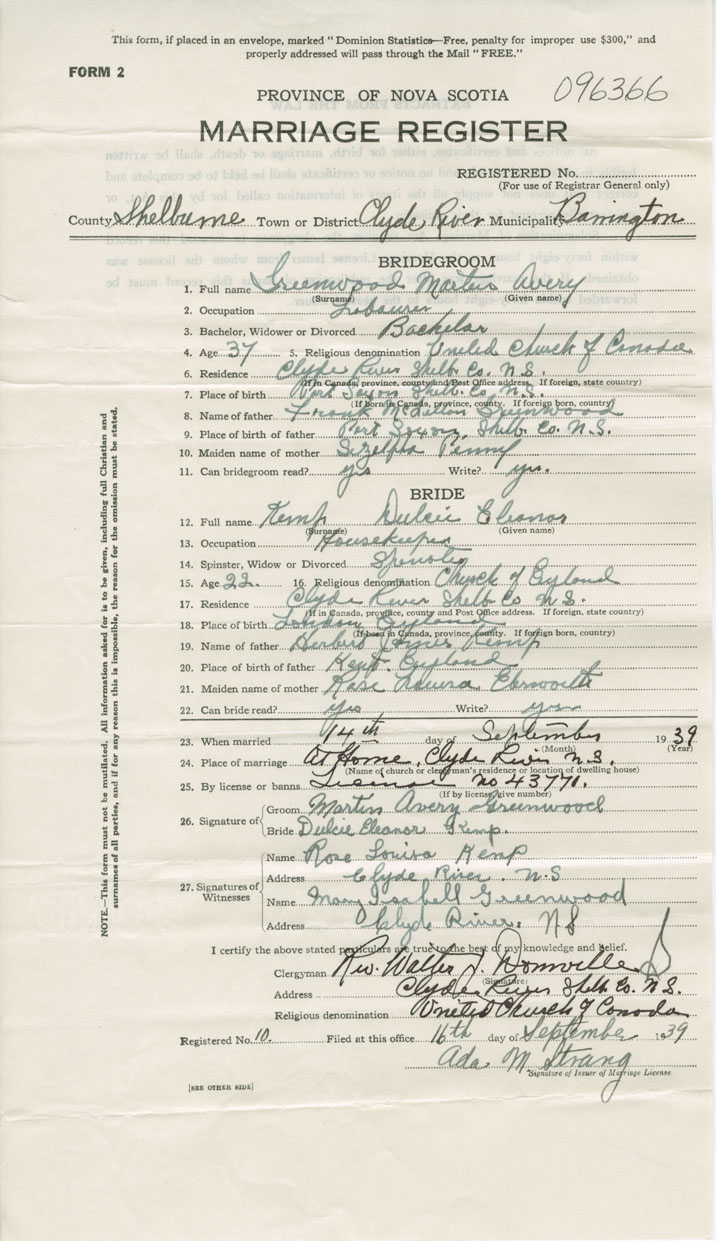 This form, if placed in an envelope, marked "Dominion Statistics—Free, penalty for improper use $300," and
properly addressed will pass through the Mail "FREE."
FORM 2
PROVINCE OF NOVA SCOTIA 096366
MARRIAGE REGISTER
REGISTERED No.
(For use of Registrar General only)
County Shelburne Town or District Clyde River Municipality Barrington
BRIDEGROOM
1. Full name Greenwood Martin Avery
(Surname) (Given name)
2. Occupation Labourer
3. Bachelor, Widower or Divorced Bachelor
4. Age 37 5. Religious denomination United Church of Canada
6. Residence Clyde River Shelb. Co. N.S.
(If in Canada, province, county and Post Office address. If foreign, state country)
7. Place of birth Port Saxon Shelb. Co. N.S.
(If born in Canada, province, county. If foreign born, country)
8. Name of father Frank Greenwood
9. Place of birth of father Port Saxon, Shelb. Co. N.S.
10. Maiden name of mother Penny
11. Can bridegroom read? yes Write? yes.
BRIDE
12. Full name Kemp Dulcie Eleanor
(Surname) (Given name)
13. Occupation Housekeeper
14. Spinster, Widow or Divorced Spinster
15. Age 22. 16. Religious denomination Church of England
17. Residence Clyde River Shelb Co N.S.
(If in Canada, province, county and Post Office address. If foreign, state country)
18. Place of birth London England
(If born in Canada, province, county. If foreign born, country)
19. Name of father Herbert James Kemp
20. Place of birth of father Kent. England
21. Maiden name of mother Rose Louisa
22. Can bride read? yes Write? yes
23. When married 14th day of September 1939
(Month) (Year)
24. Place of marriage At Home, Clyde River N.S.
(Name of church or clergyman's residence or location of dwelling house)
25. By license or banns License No 43771.
(If by license, give number)
26. Signature of Groom Martin Avery Greenwood
Bride Dulcie Eleanor Kemp.
27. Signatures of Witnesses
Name Rose Louisa Kemp
Address Clyde River. N.S
Name Mary Isabell Greenwood
Address Clyde River. N S
I certify the above stated particulars are true to the best of my knowledge and belief.
Clergyman Rev. Walter J. Domville
(Signature)
Address Clyde River Shelb Co. N.S.
Religious denomination United Church of Canada
Registered No. 10. Filed at this office 16th day of September 1939
Ada M Strang
Signature of Issuer of Marriage License.
[SEE OTHER SIDE]
NOTE.—This form must not be mutilated. All information asked for is to be given, including full Christian and
surnames of all parties, and if for any reason this is impossible, the reason for the omission must be stated.